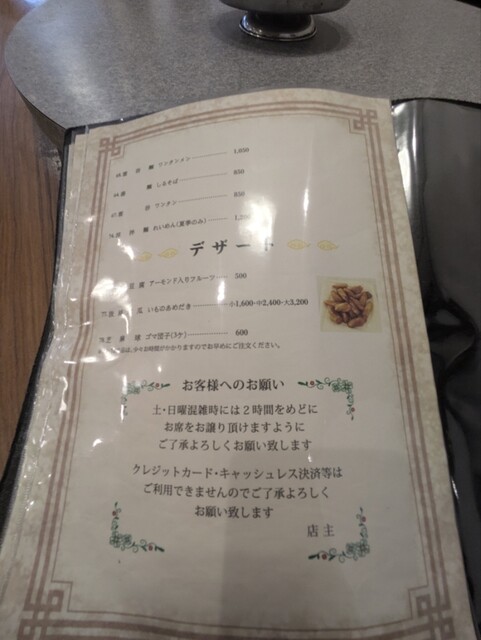 麺 ワンタンメン 1,050
麺 しるそば 850
ワンタン 850
麺 れいめん(夏季のみ)
デザート
豆腐 アーモンド入りフルーツ 500
いものあめだき 小1,600・中2,400・大3,200
ゴマ団子(3ケ) 600
少々お時間がかかりますのでお早めにご注文ください。
お客様へのお願い
土・日曜混雑時には2時間をめどに
お席をお譲り頂けますように
ご了承よろしくお願い致します
クレジットカード・キャッシュレス決済等は
ご利用できませんのでご了承よろしく
お願い致します
店主